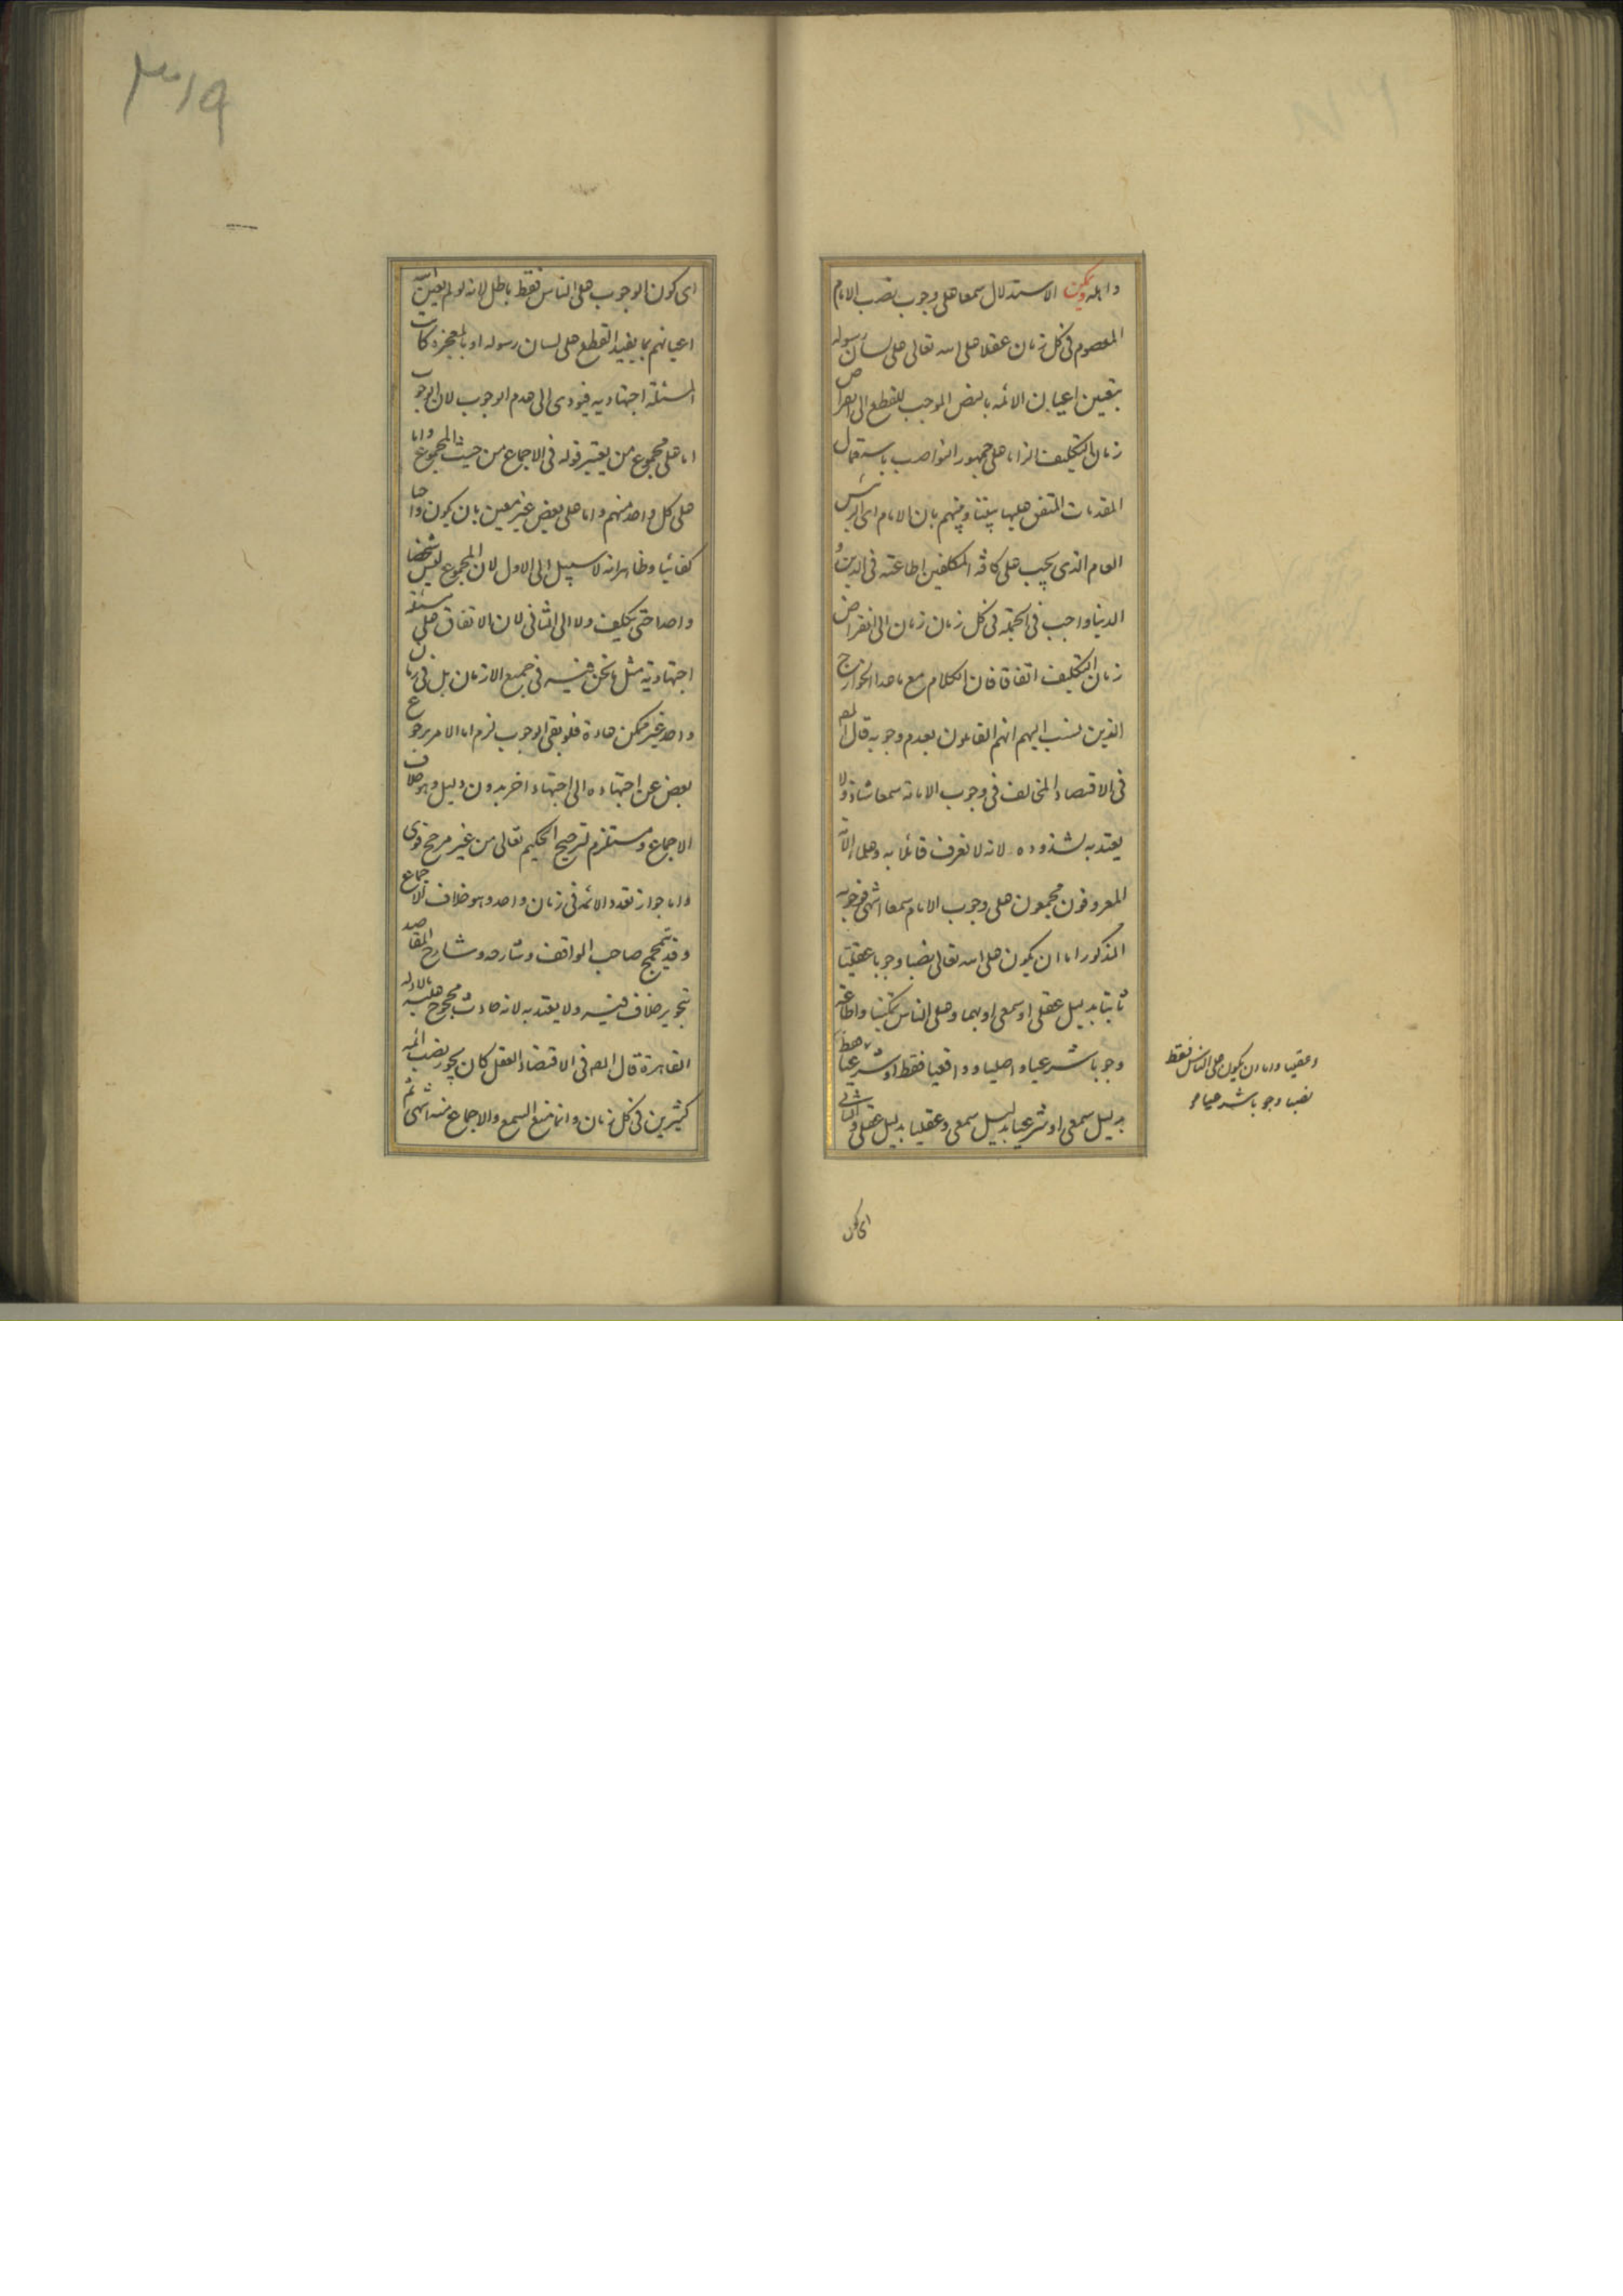 واهله ويمكن الاستدلال سمعا على وجوب نصب الامام
المعصوم فى كل زمان عقلا على الله تعالى على لسان رسوله
بتعين اعيان الائمه بالنص الموجب للقطع الى انقراض
زمان التكليف الزاما على جمهور النواصب باستعمال
المقدمات المتفق عليها بيننا وبينهم بان الامام اى الرئيس
العام الذى يجب على كافة المكلفين اطاعته فى الدين و
الدنيا واجب فى الجملة فى كل زمان زمان الى انقراض
زمان التكليف اتفاقا فان الكلام مع ماعدا الخوارج
الذين نسب اليهم انهم القائلون بعدم وجوبه قال المص
فى الاقتصاد المخالف فى وجوب الامامة سمعا شاذ ولا
يعتد به لشذوذه لانه لا نعرف قائلا به وعلما الامة
المعروفون مجمعون على وجوب الامام سمعا انتهى فوجوبه
المذكور اما ان يكون على الله تعالى نصبا وجوبا عقليا
ثابتا بدليل عقلى او سمعى او بهما وعلى الناس تمكينا واطاعة
وجوبا شرعيا واصليا وواقعيا فقط او شرعيا
بدليل سمعى او شرعيا بدليل سمعى وعقليا بدليل عقلى والثانى
وعقليا واما ان يكون على الناس فقط
نصبا وجوبا شرعيا
اى كون
٣١٩
اى كون الوجوب على الناس فقط باطل لانه لو لم يعين الله
اعيانهم بما يفيد القطع على لسان رسوله او بالمعجزه كانت
المسئلة اجتهاديه فيؤدى الى عدم الوجوب لان الوجوب
اما على مجموع من يعتبر قوله فى الاجماع من حيث المجموع واما
على كل واحد منهم واما على بعض غير معين بان يكون واجبا
كفائيا وظاهر انه لا سبيل الى الاول لان المجموع ليس شخصا
واحدا حتى يكلف ولا الى الثانى لان الاتفاق على مسئلة
اجتهادية مثل ما نحن فيه فى جميع الازمان بل فى زمان
واحد غير ممكن عادة فلو بقى الوجوب لزم اما الامر برجوع
بعض عن اجتهاده الى اجتهاد اخر بدون دليل وهو خلاف
الاجماع ومستلزم لترجيح الحكيم تعالى من غير مرجح قوى
واما جواز تعدد الائمه فى زمان واحد وهو خلاف الاجماع
وقد تمجمج صاحب المواقف وشارحه وشارح المقاصد
بتجويز خلاف فيه ولا يعتد به لانه حادث محجوج عليه بالادلة
القاهرة قال المص فى الاقتصاد العقل كان يجوز نصب ائمه
كثيرين فى كل زمان وانما منع السمع والاجماع منه انتهى ثم